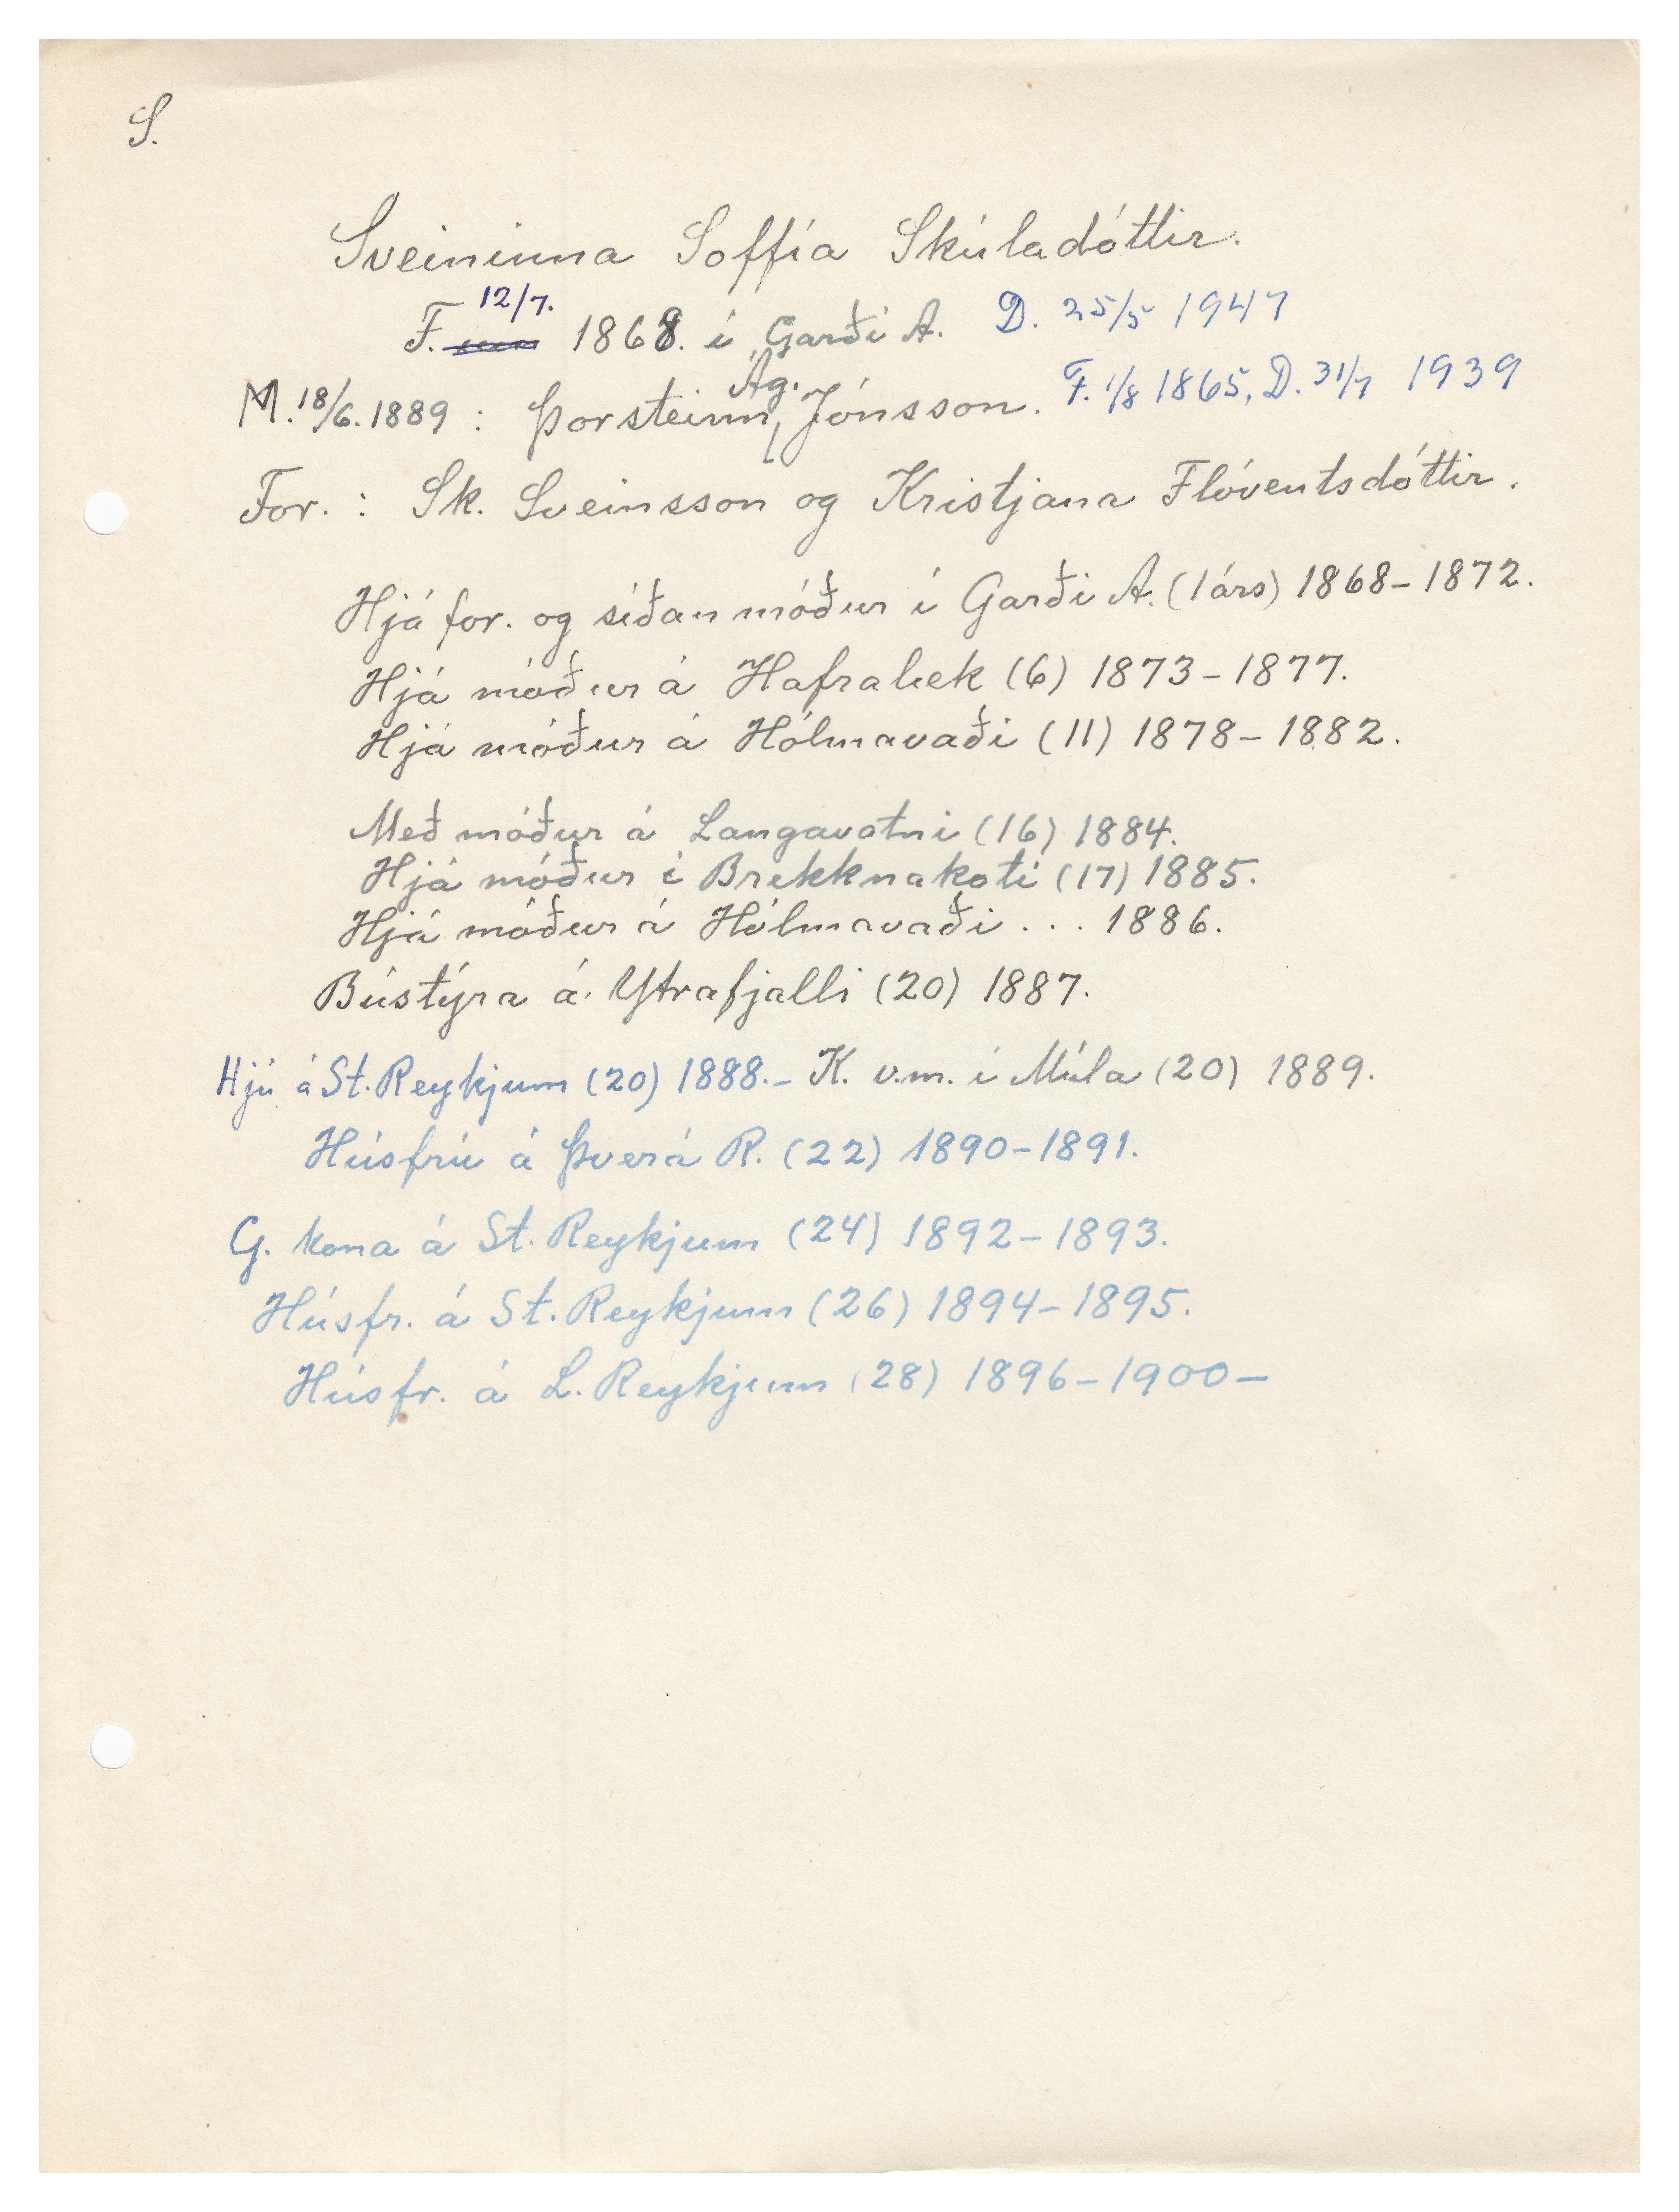 S.
Sveininna Soffía Skúladóttir.
F. 12/7. 1868. í Garði A. D. 25/5 1947
M. 18/6. 1889 : Þorsteinn Ág. Jónsson. F. 1/8 1865, D. 31/7 1939
For. : Sk. Sveinsson og Kristjana Flóventsdóttir.
Hjá for. og síðan móður í Garði A. (1 árs) 1868-1872.
Hjá móður á Hafralæk (6) 1873-1877.
Hjá móður á Hólmavaði (11) 1878-1882.
Með móður á Langavatni (16) 1884.
Hjá móður í Brekknakoti (17) 1885.
Hjá móður á Hólmavaði . . . 1886.
Bústýra á Ytrafjalli (20) 1887.
Hjú á St. Reykjum (20) 1888.- K. v.m. í Múla (20) 1889.
Húsfrú á Þverá R. (22) 1890-1891.
G. kona á St. Reykjum (24) 1892-1893.
Húsfr. á St. Reykjum (26) 1894-1895.
Húsfr. á L. Reykjum (28) 1896-1900-